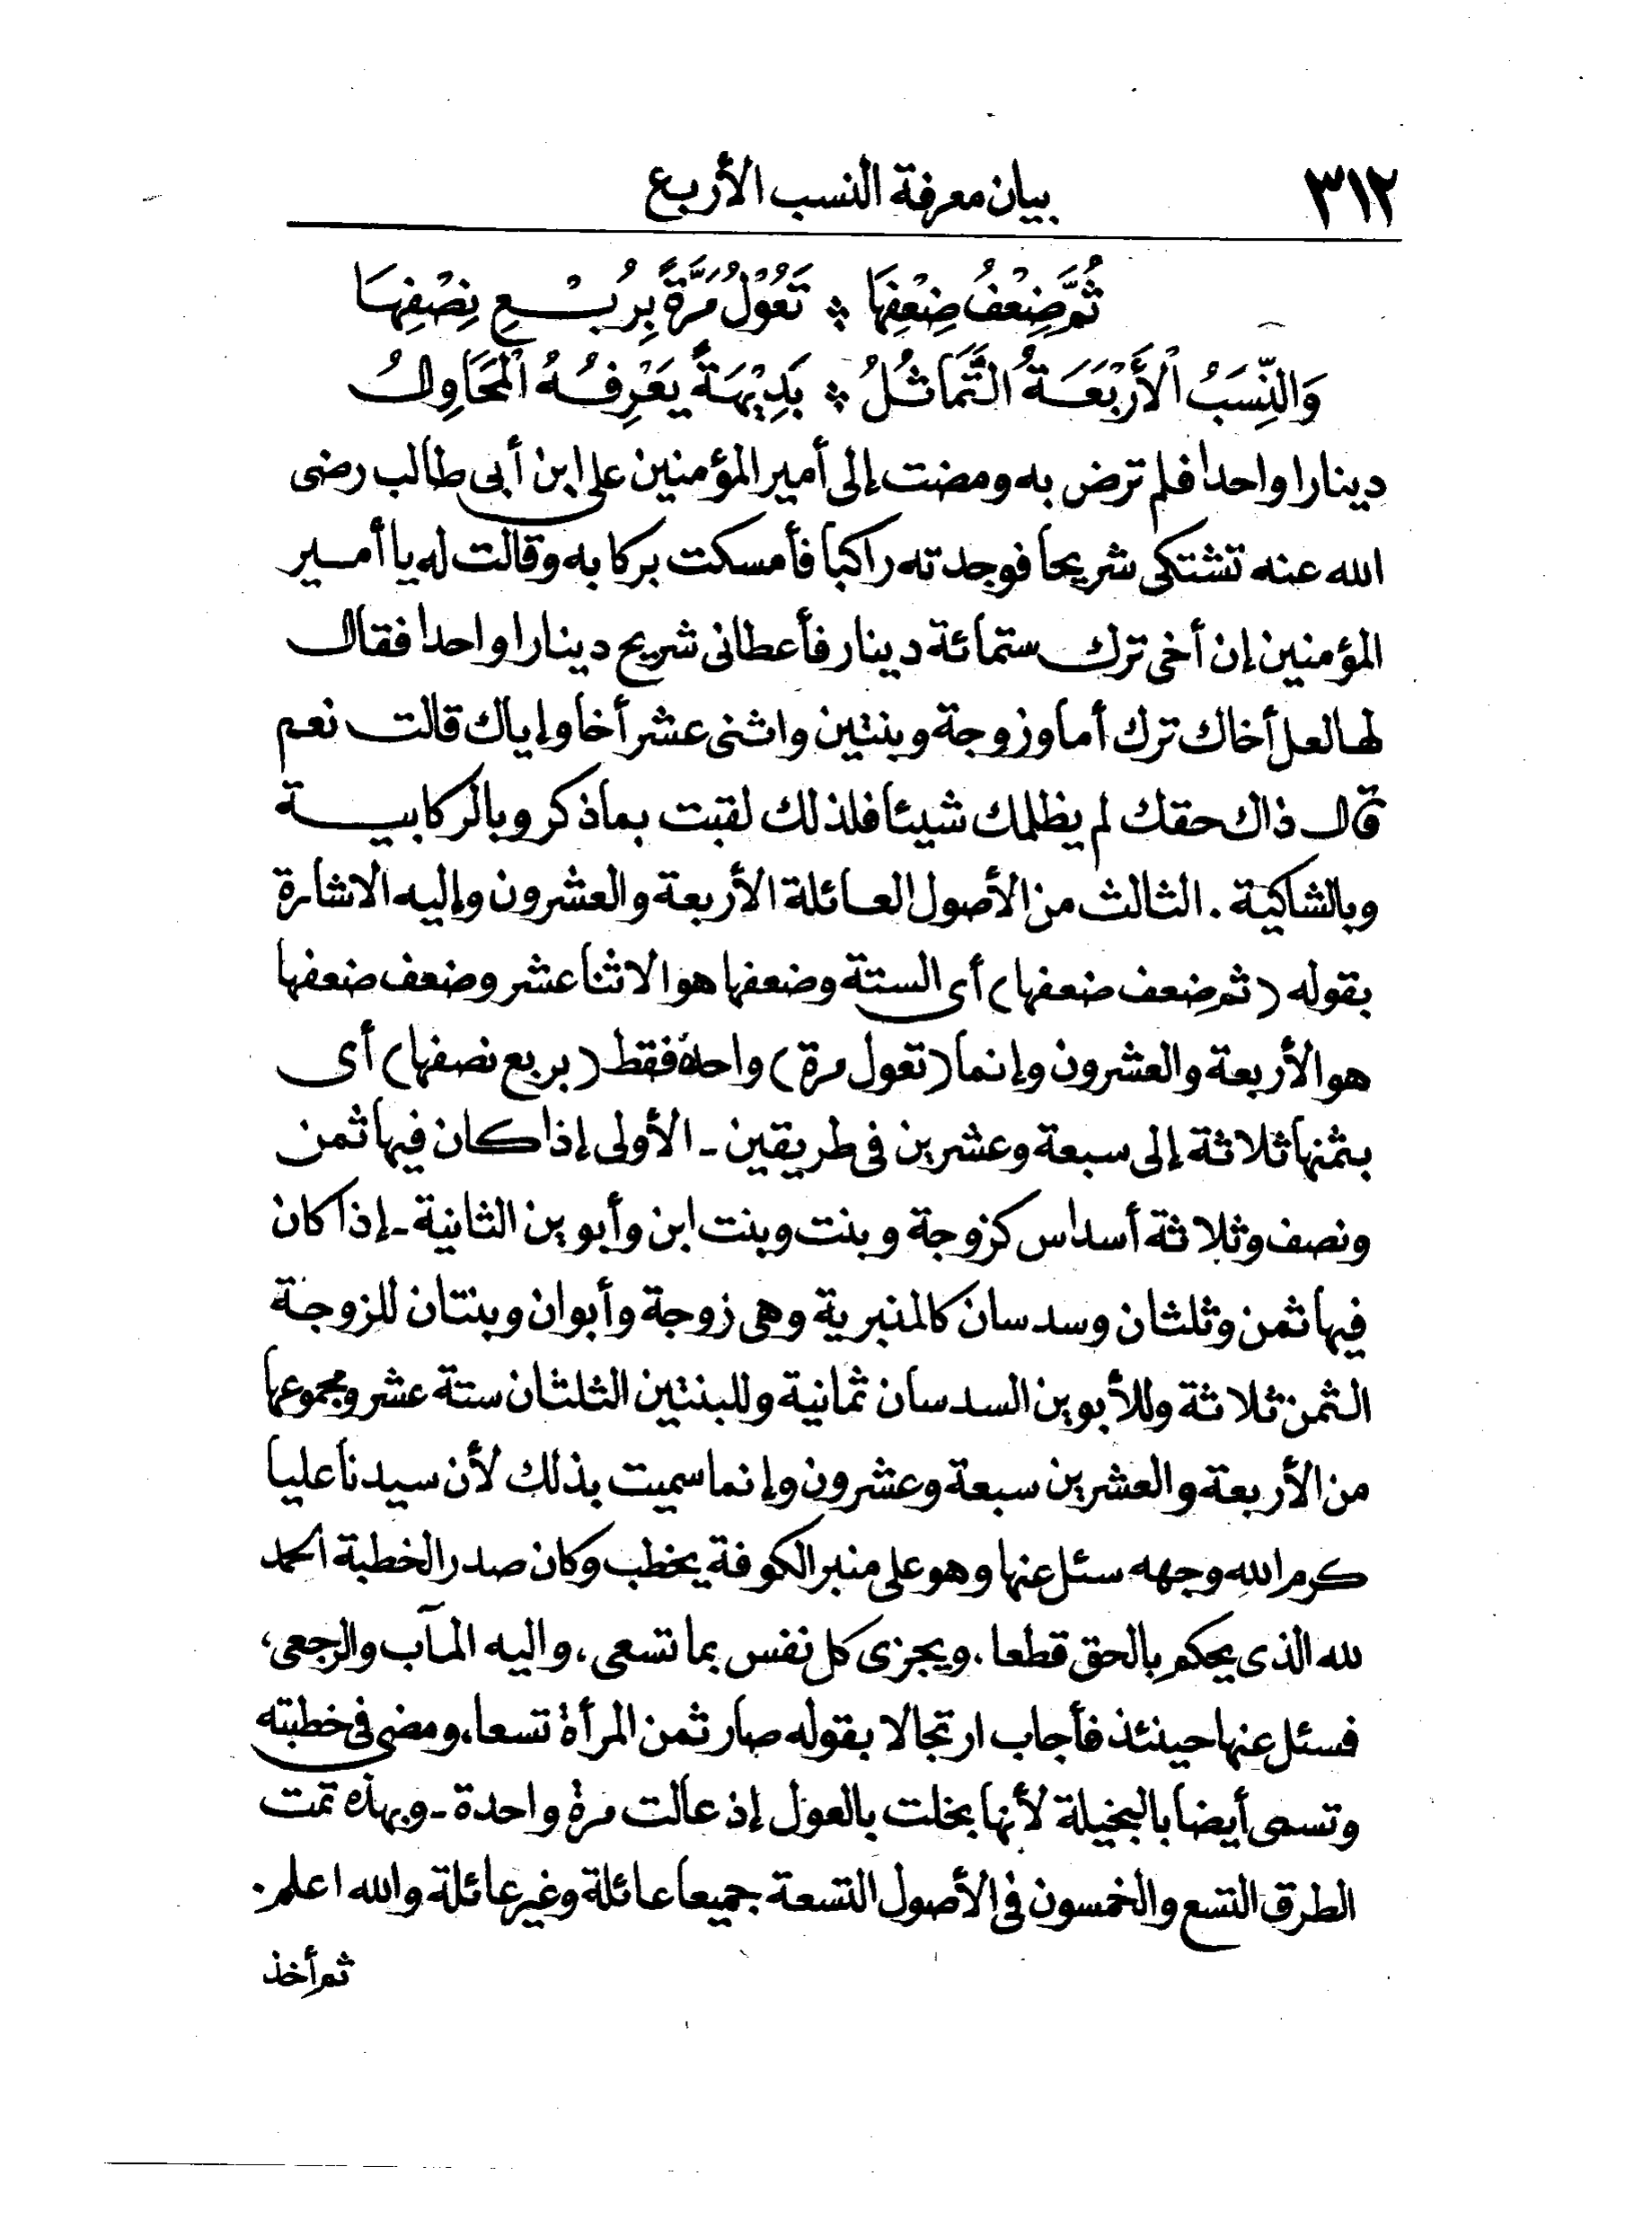 ٣١٢ بيان معرفة النسب الأربع
ثُمَّ ضِعْفُ ضِعْفِهَا * تَعُوْلُ مَرَّةً بِرُبْعِ نِصْفِهَا
وَالنِّسَبُ الْأَرْبَعَةُ التَّمَاثُلُ * بَدِيْهَةً يَعْرِفُهُ الْمُحَاوِلُ
دينارا واحدا فلم ترض به ومضت إلى أمير المؤمنين على ابن أبى طالب رضى
الله عنه تشتكى شريحا فوجدته راكبا فأمسكت بركابه وقالت له يا أمير
المؤمنين إن أخى ترك ستمائة دينار فأعطانى شريح دينارا واحدا فقال
لها لعل أخاك ترك أما وزوجة وبنتين واثنى عشر أخا وإياك قالت نعم
قال ذاك حقك لم يظلمك شيئا فلذلك لقبت بما ذكر وبالركابية
وبالشاكية . الثالث من الأصول العائلة الأربعة والعشرون وإليه الاشارة
بقوله (ثم ضعف ضعفها) أى الستة وضعفها هو الاثنا عشر وضعف ضعفها
هو الأربعة والعشرون وإنما (تعول مرة) واحدة فقط (بربع نصفها) أى
بثمنها ثلاثة إلى سبعة وعشرين فى طريقين - الأولى إذا كان فيها ثمن
ونصف وثلاثة أسداس كزوجة وبنت وبنت ابن وأبوين الثانية - إذا كان
فيها ثمن وثلثان وسدسان كالمنبرية وهى زوجة وأبوان وبنتان للزوجة
الثمن ثلاثة وللأبوين السدسان ثمانية وللبنتين الثلثان ستة عشر ومجموعها
من الأربعة والعشرين سبعة وعشرون وإنما سميت بذلك لأن سيدنا عليا
كرم الله وجهه سئل عنها وهو على منبر الكوفة يخطب وكان صدر الخطبة الحمد
لله الذى يحكم بالحق قطعا ، ويجزى كل نفس بما تسعى ، واليه المآب والرجعى ،
فسئل عنها حينئذ فأجاب ارتجالا بقوله صار ثمن المرأة تسعا ، ومضى فى خطبته
وتسمى أيضا بالبخيلة لأنها بخلت بالعول إذ عالت مرة واحدة - وبهذه تمت
الطرق التسع والخمسون فى الأصول التسعة جميعا عائلة وغير عائلة والله اعلم .
ثم أخذ